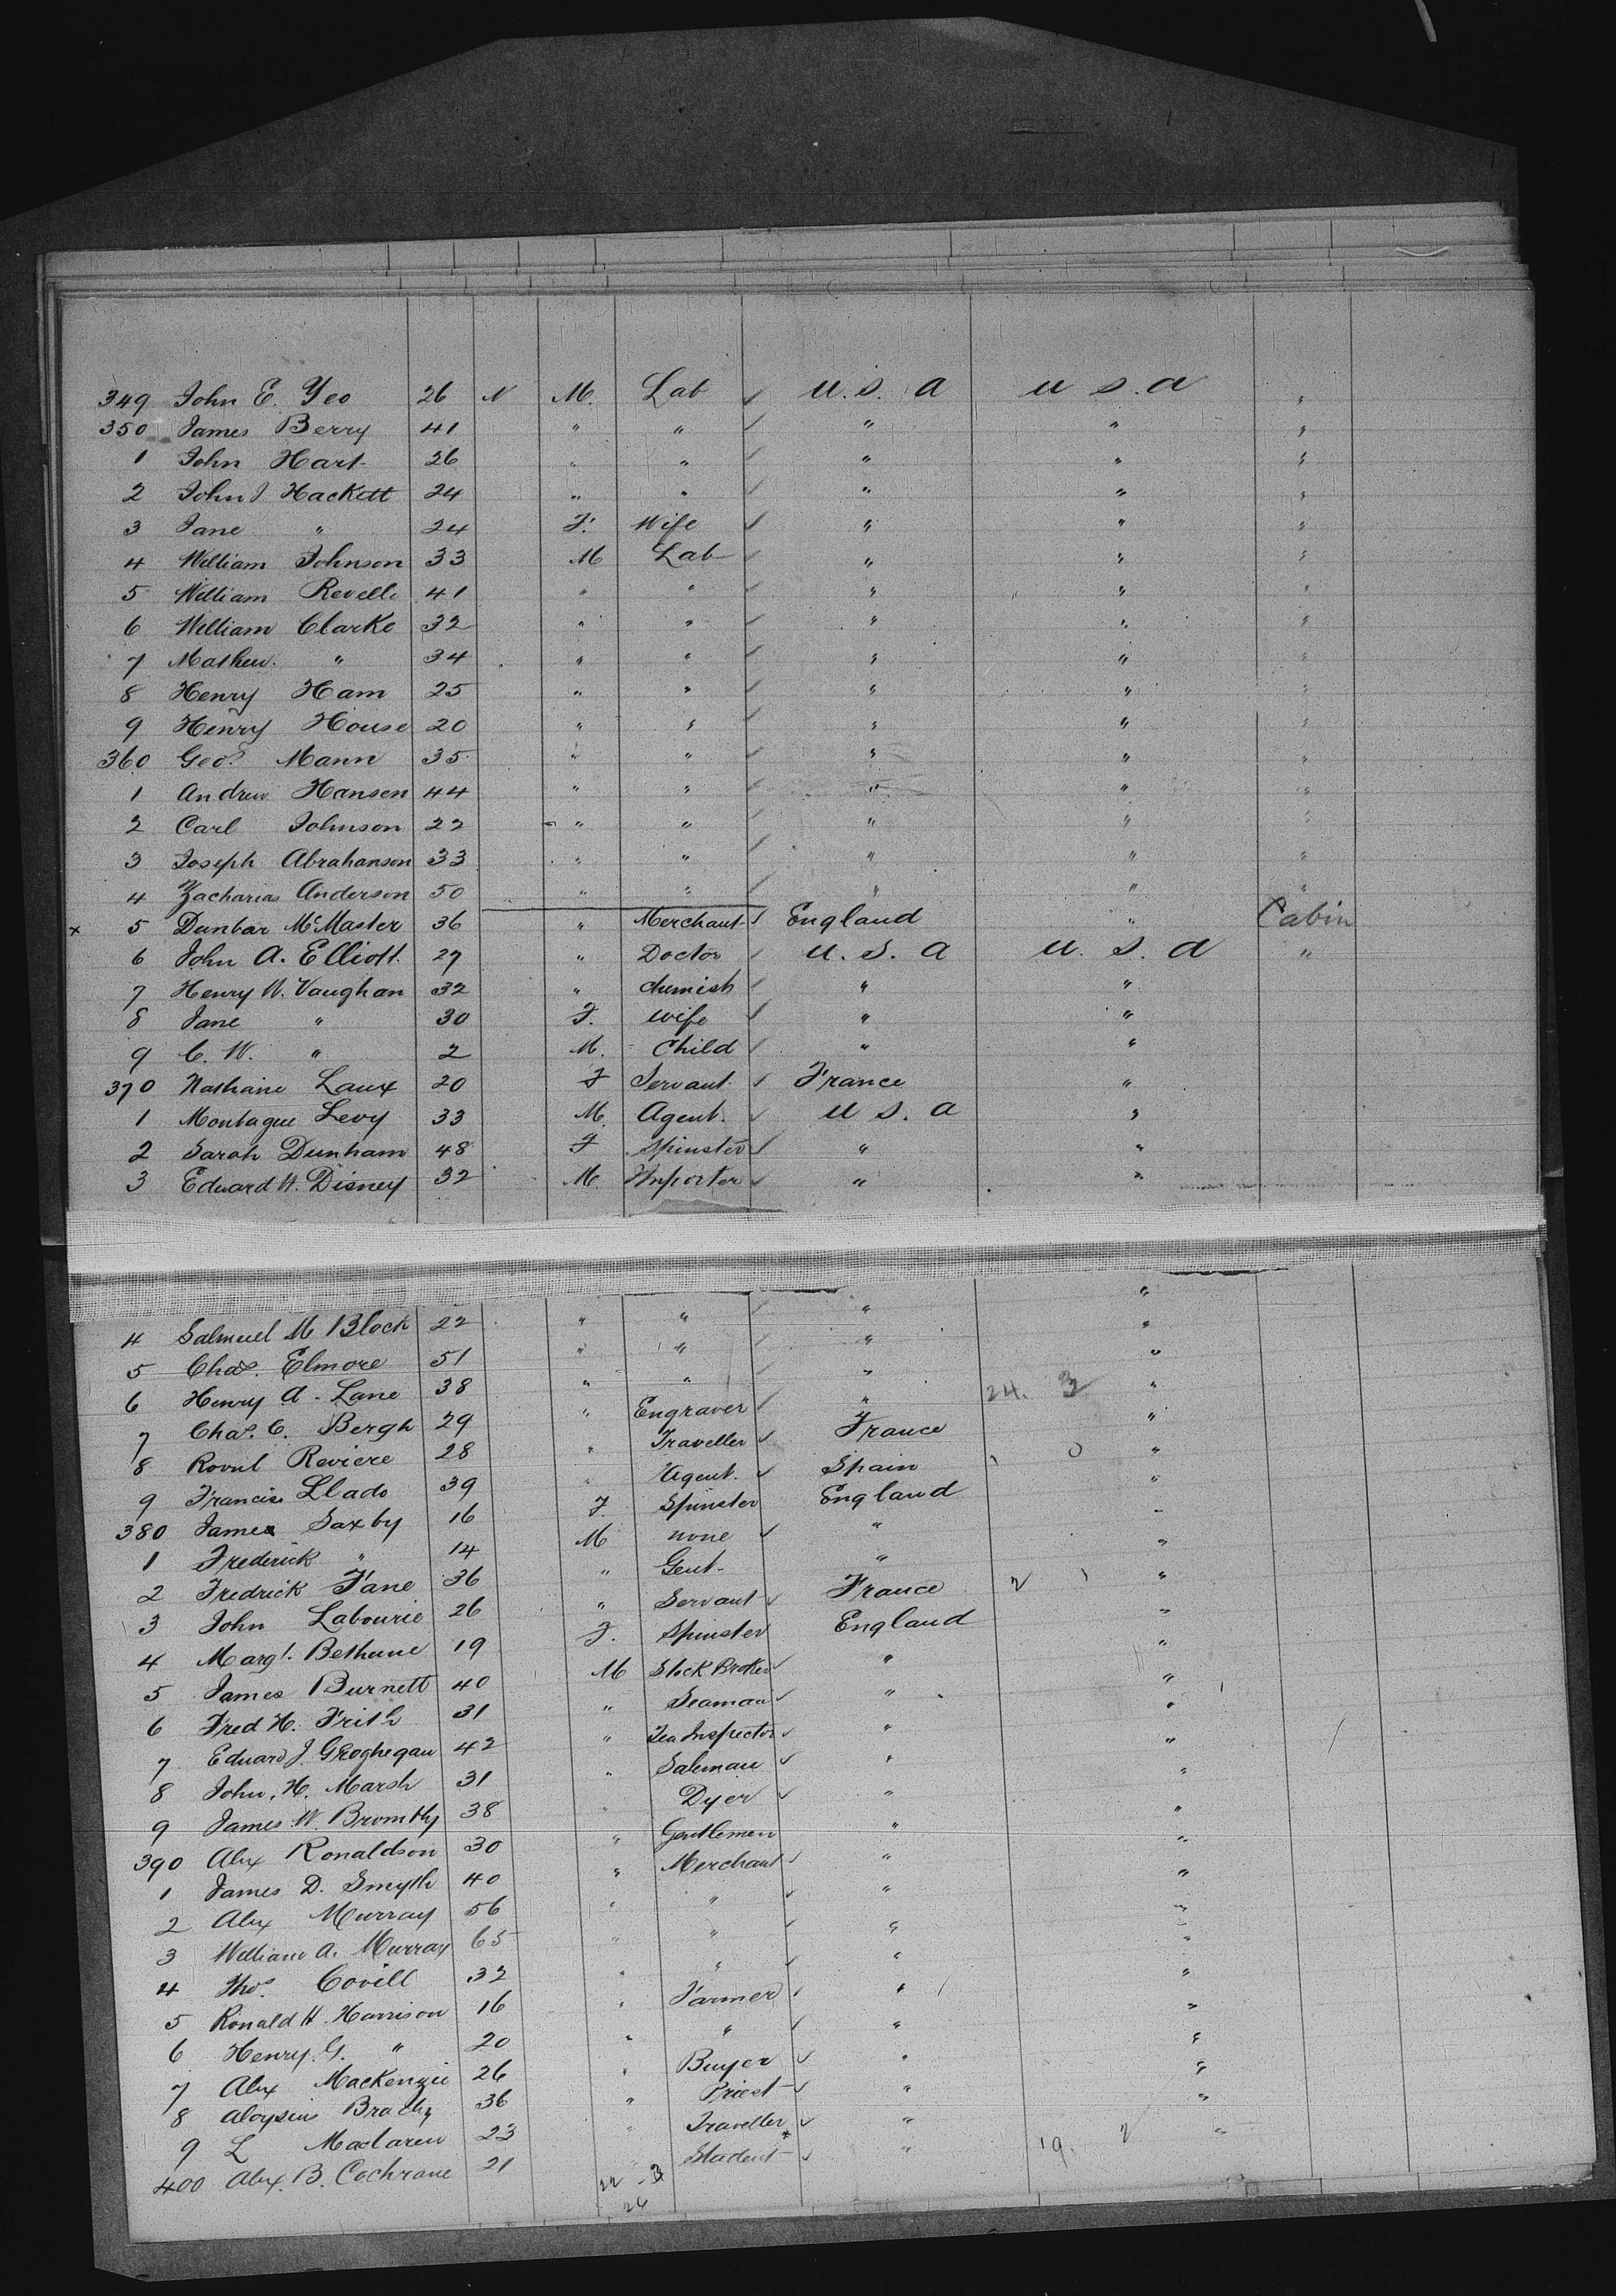 349 John E. Yeo 26 N M. Lab ✓ U.S. A U S. A "
350 James Berry 41 " " ✓ " " "
1 John Hart 26 " " ✓ " " "
2 John J Hackett 24 " " ✓ " " "
3 Jane " 24 F. Wife ✓ " " "
4 William Johnson 33 M Lab ✓ " " "
5 William Revelle 41 " " ✓ " " "
6 William Clarke 32 " " ✓ " " "
7 Mathew. " 34 " " ✓ " " "
8 Henry Ham 25 " " ✓ " " "
9 Henry House 20 " " ✓ " " "
360 Geo. Mann 35 " " ✓ " " "
1 Andrew Hansen 44 " " ✓ " " "
2 Carl Johnson 22 " " ✓ " " "
3 Joseph Abrahanson 33 " " ✓ " " "
4 Zacharias Anderson 50 " " ✓ " " "
x 5 Dunbar McMaster 36 " Merchant ✓ England " Cabin
6 John A. Elliott 27 " Doctor ✓ U. S. A U. S. A "
7 Henry W. Vaughan 32 " Chemish ✓ " "
8 Jane " 30 F. Wife ✓ " "
9 C. W. " 2 M. Child ✓ " "
370 Laux 20 F Servant ✓ France "
1 Montague Levy 33 M. Agent. ✓ U S. A "
2 Sarah Dunham 48 F Spinster ✓ " "
3 Edward H. Disney 32 M. Importer ✓ " "
4 Salmuel M Block 22 " " ✓ " "
5 Chas. Elmore 51 " " ✓ " "
6 Henry A. Lane 38 " " ✓ " "
7 Chas. C. Bergh 29 " Engraver ✓ " 24. 3 "
8 Rovul Reviere 28 " Traveller ✓ France "
9 Francis Llado 39 " Agent. ✓ Spain "
380 James Saxby 16 F. Spinster England "
1 Frederick " 14 M none ✓ " "
2 Fredrick Fane 36 " Gent " "
3 John Labourie 26 " Servant ✓ France "
4 Margt. Bethune 19 F. Spinster England "
5 James Burnett 40 M Stock Broker ✓ " "
6 Fred H. Frith 31 " Seaman ✓ " "
7 Edward J. Geoghegan 42 " Tea Inspector ✓ " "
8 John. H. Marsh 31 " Saleman ✓ " "
9 James W. Bromthy 38 " Dyer ✓ " "
390 Alex Ronaldson 30 " Gentlemen " "
1 James D. Smyth 40 " Merchant ✓ " "
2 Alex Murray 56 " " ✓ " "
3 William A. Murray 65 " " ✓ " "
4 Thos. Covill 32 " " ✓ " "
5 Ronald H. Harrison 16 " Farmer ✓ " "
6 Henry. G. " 20 " " ✓ " "
7 Alex MacKenzie 26 " Buyer ✓ " "
8 Aloysius Brady 36 " Priest ✓ " "
9 L Maclaren 23 " Traveller ✓ " "
400 Alex. B. Cochrane 21 " Student ✓ " 19. 2 "
22 3
24